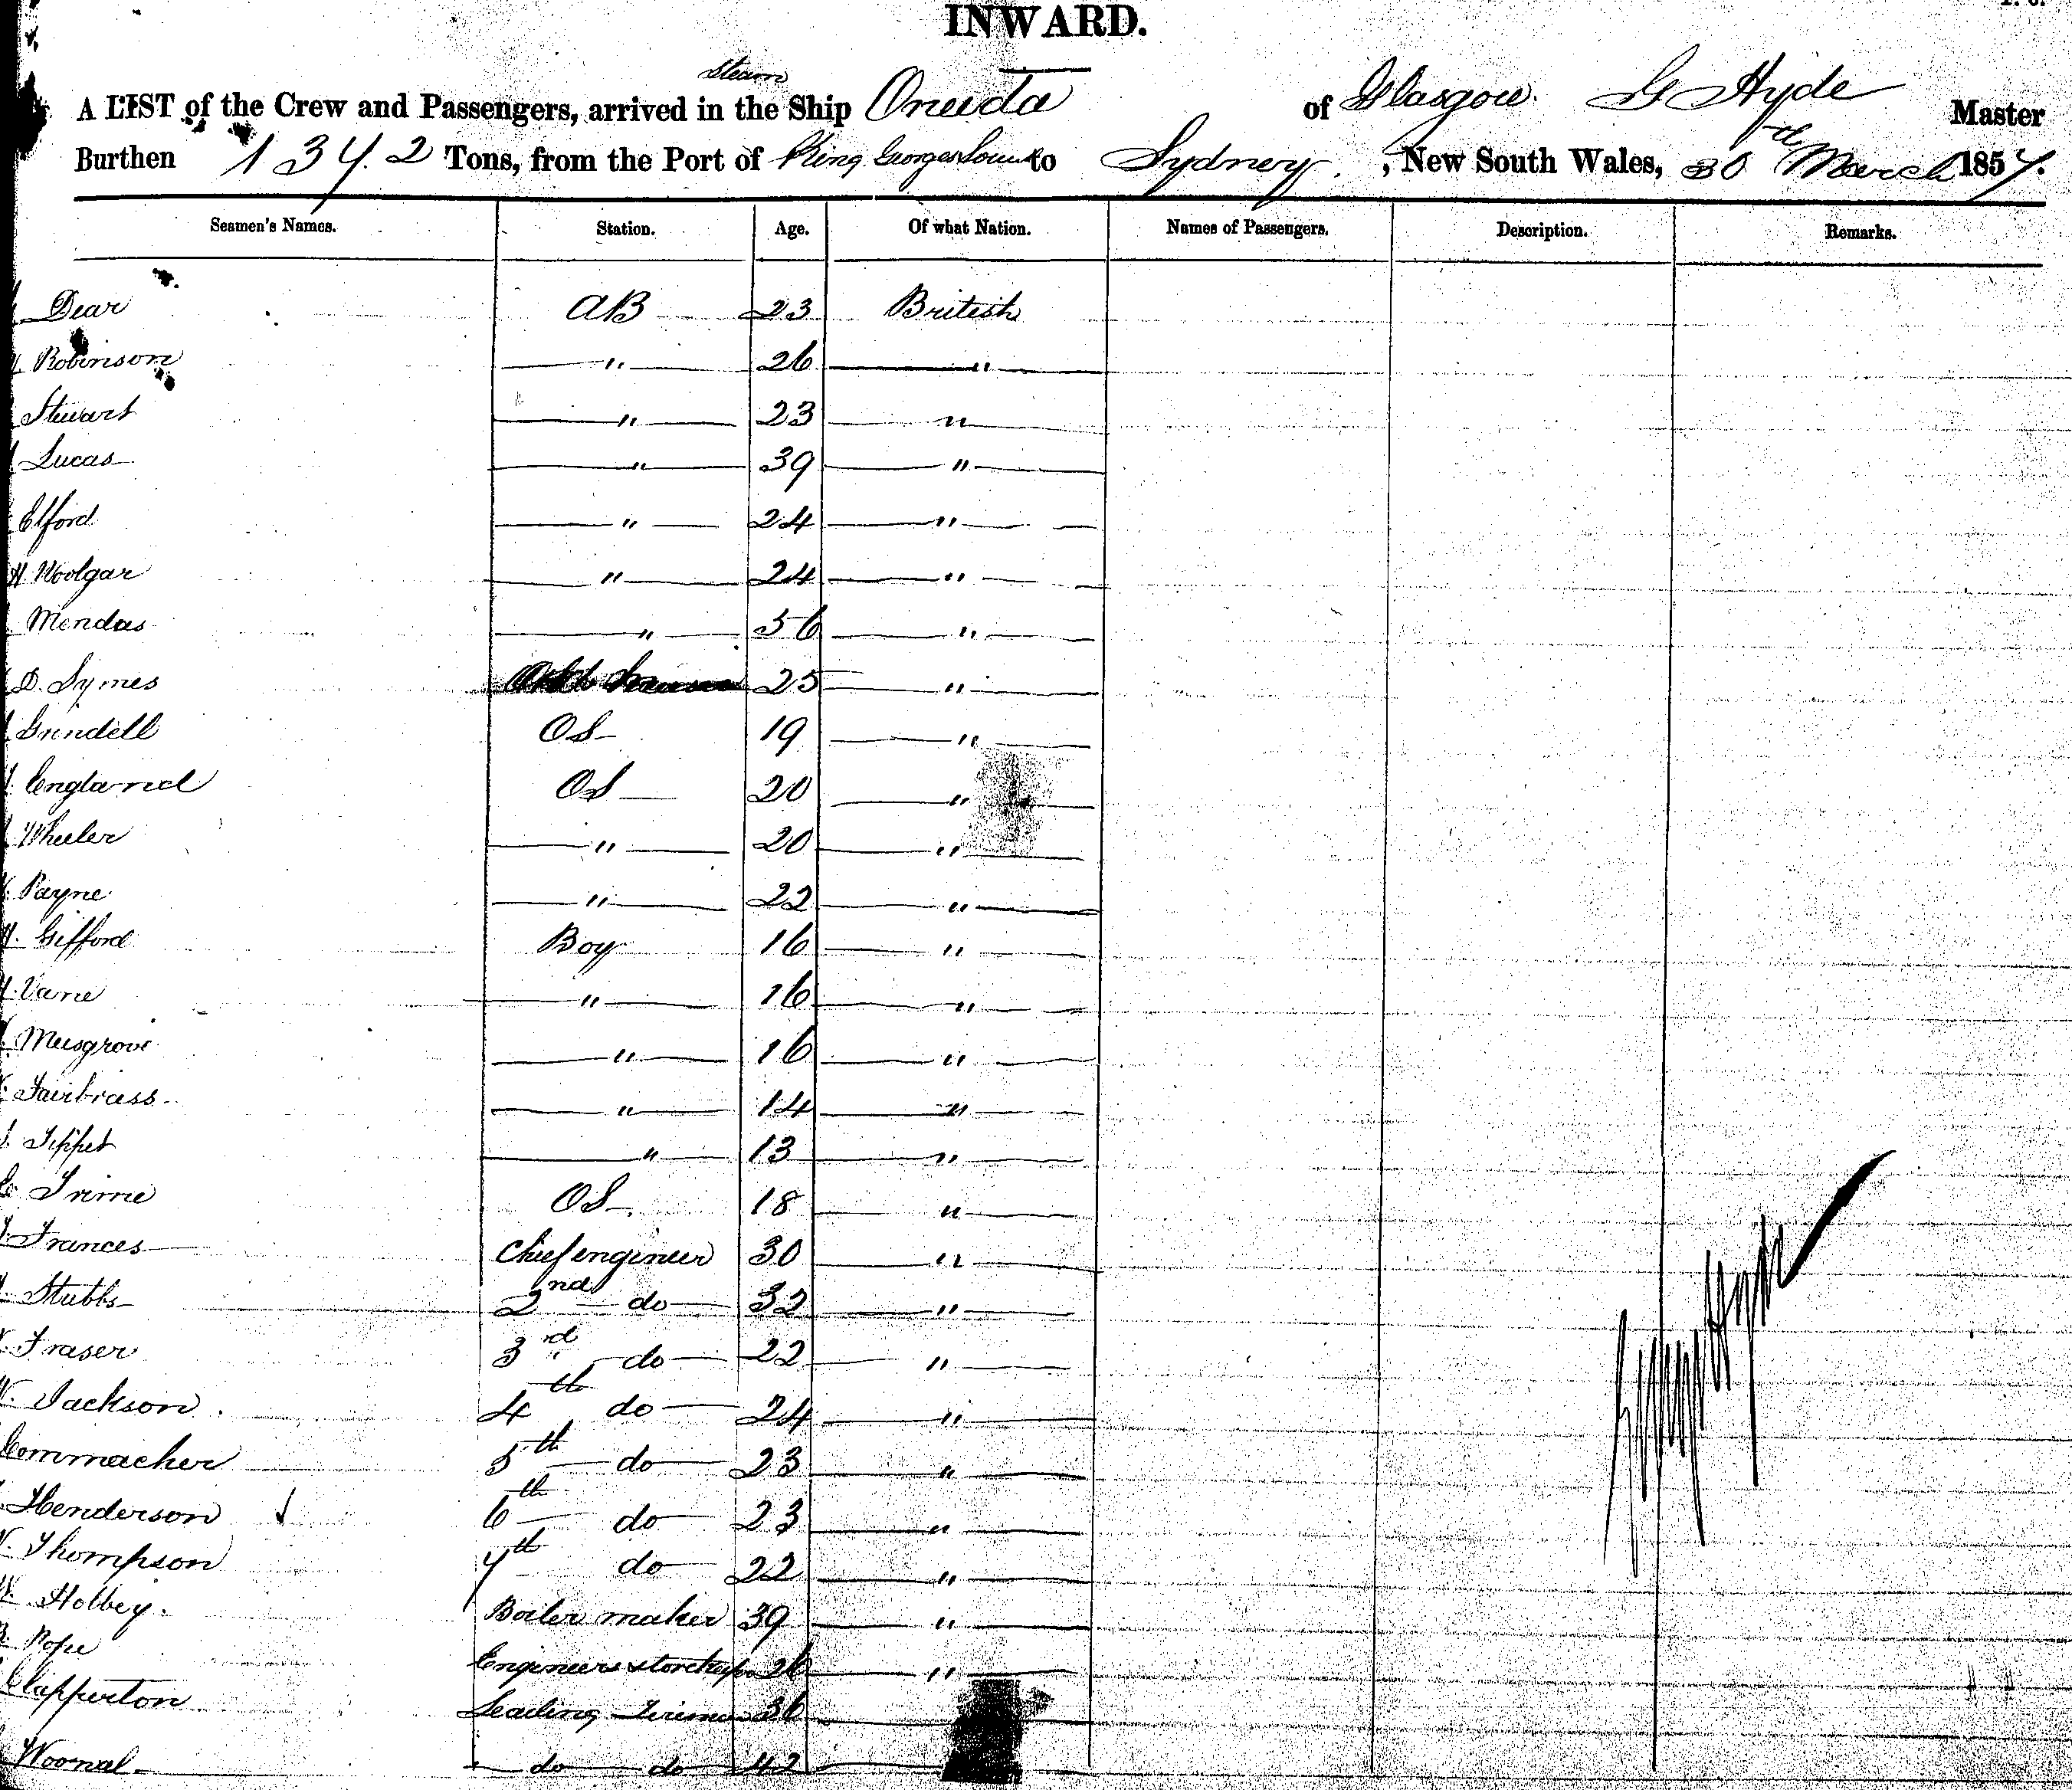 INWARD.
Steam
A LIST of the Crew and Passengers, arrived in the Ship Oneida of Glasgow. G Hyde Master
Burthen 1342 Tons, from the Port of King Georges Sound to Sydney, New South Wales, 30th March 1857.
Seamen's Names. Station. Age. Of what Nation. Names of Passengers. Description. Remarks.
Dear AB 23 British
Robinson " 26 "
Stewart " 23 "
Lucas " 39 "
Elford " 24 "
H. Woolgar " 24 "
Mendas " 56 "
D. Symes 25 "
Grindell OS 19 "
England OS 20 "
Wheeler " 20 "
Payne " 22 "
Gifford Boy 16 "
Vane " 16 "
Musgrove " 16 "
Fairbrass " 14 "
Tippet " 13 "
Trime OS 18 "
Frances Chief engineer 30 "
Stubbs 2nd do 32 "
Fraser 3rd do 22 "
W. Jackson 4th do 24 "
Commacher 5th do 23 "
Henderson 6th do 23 "
Thompson 7th do 22 "
Hobbey. Boiler maker 39 "
Pope Engineers storekeeper 26 "
Clapperton Leading Fireman 36
Woornal do do 42